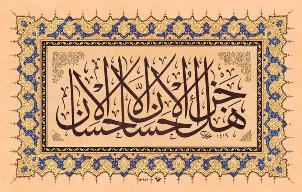 هل جزاء الاحسان الا الاحسان